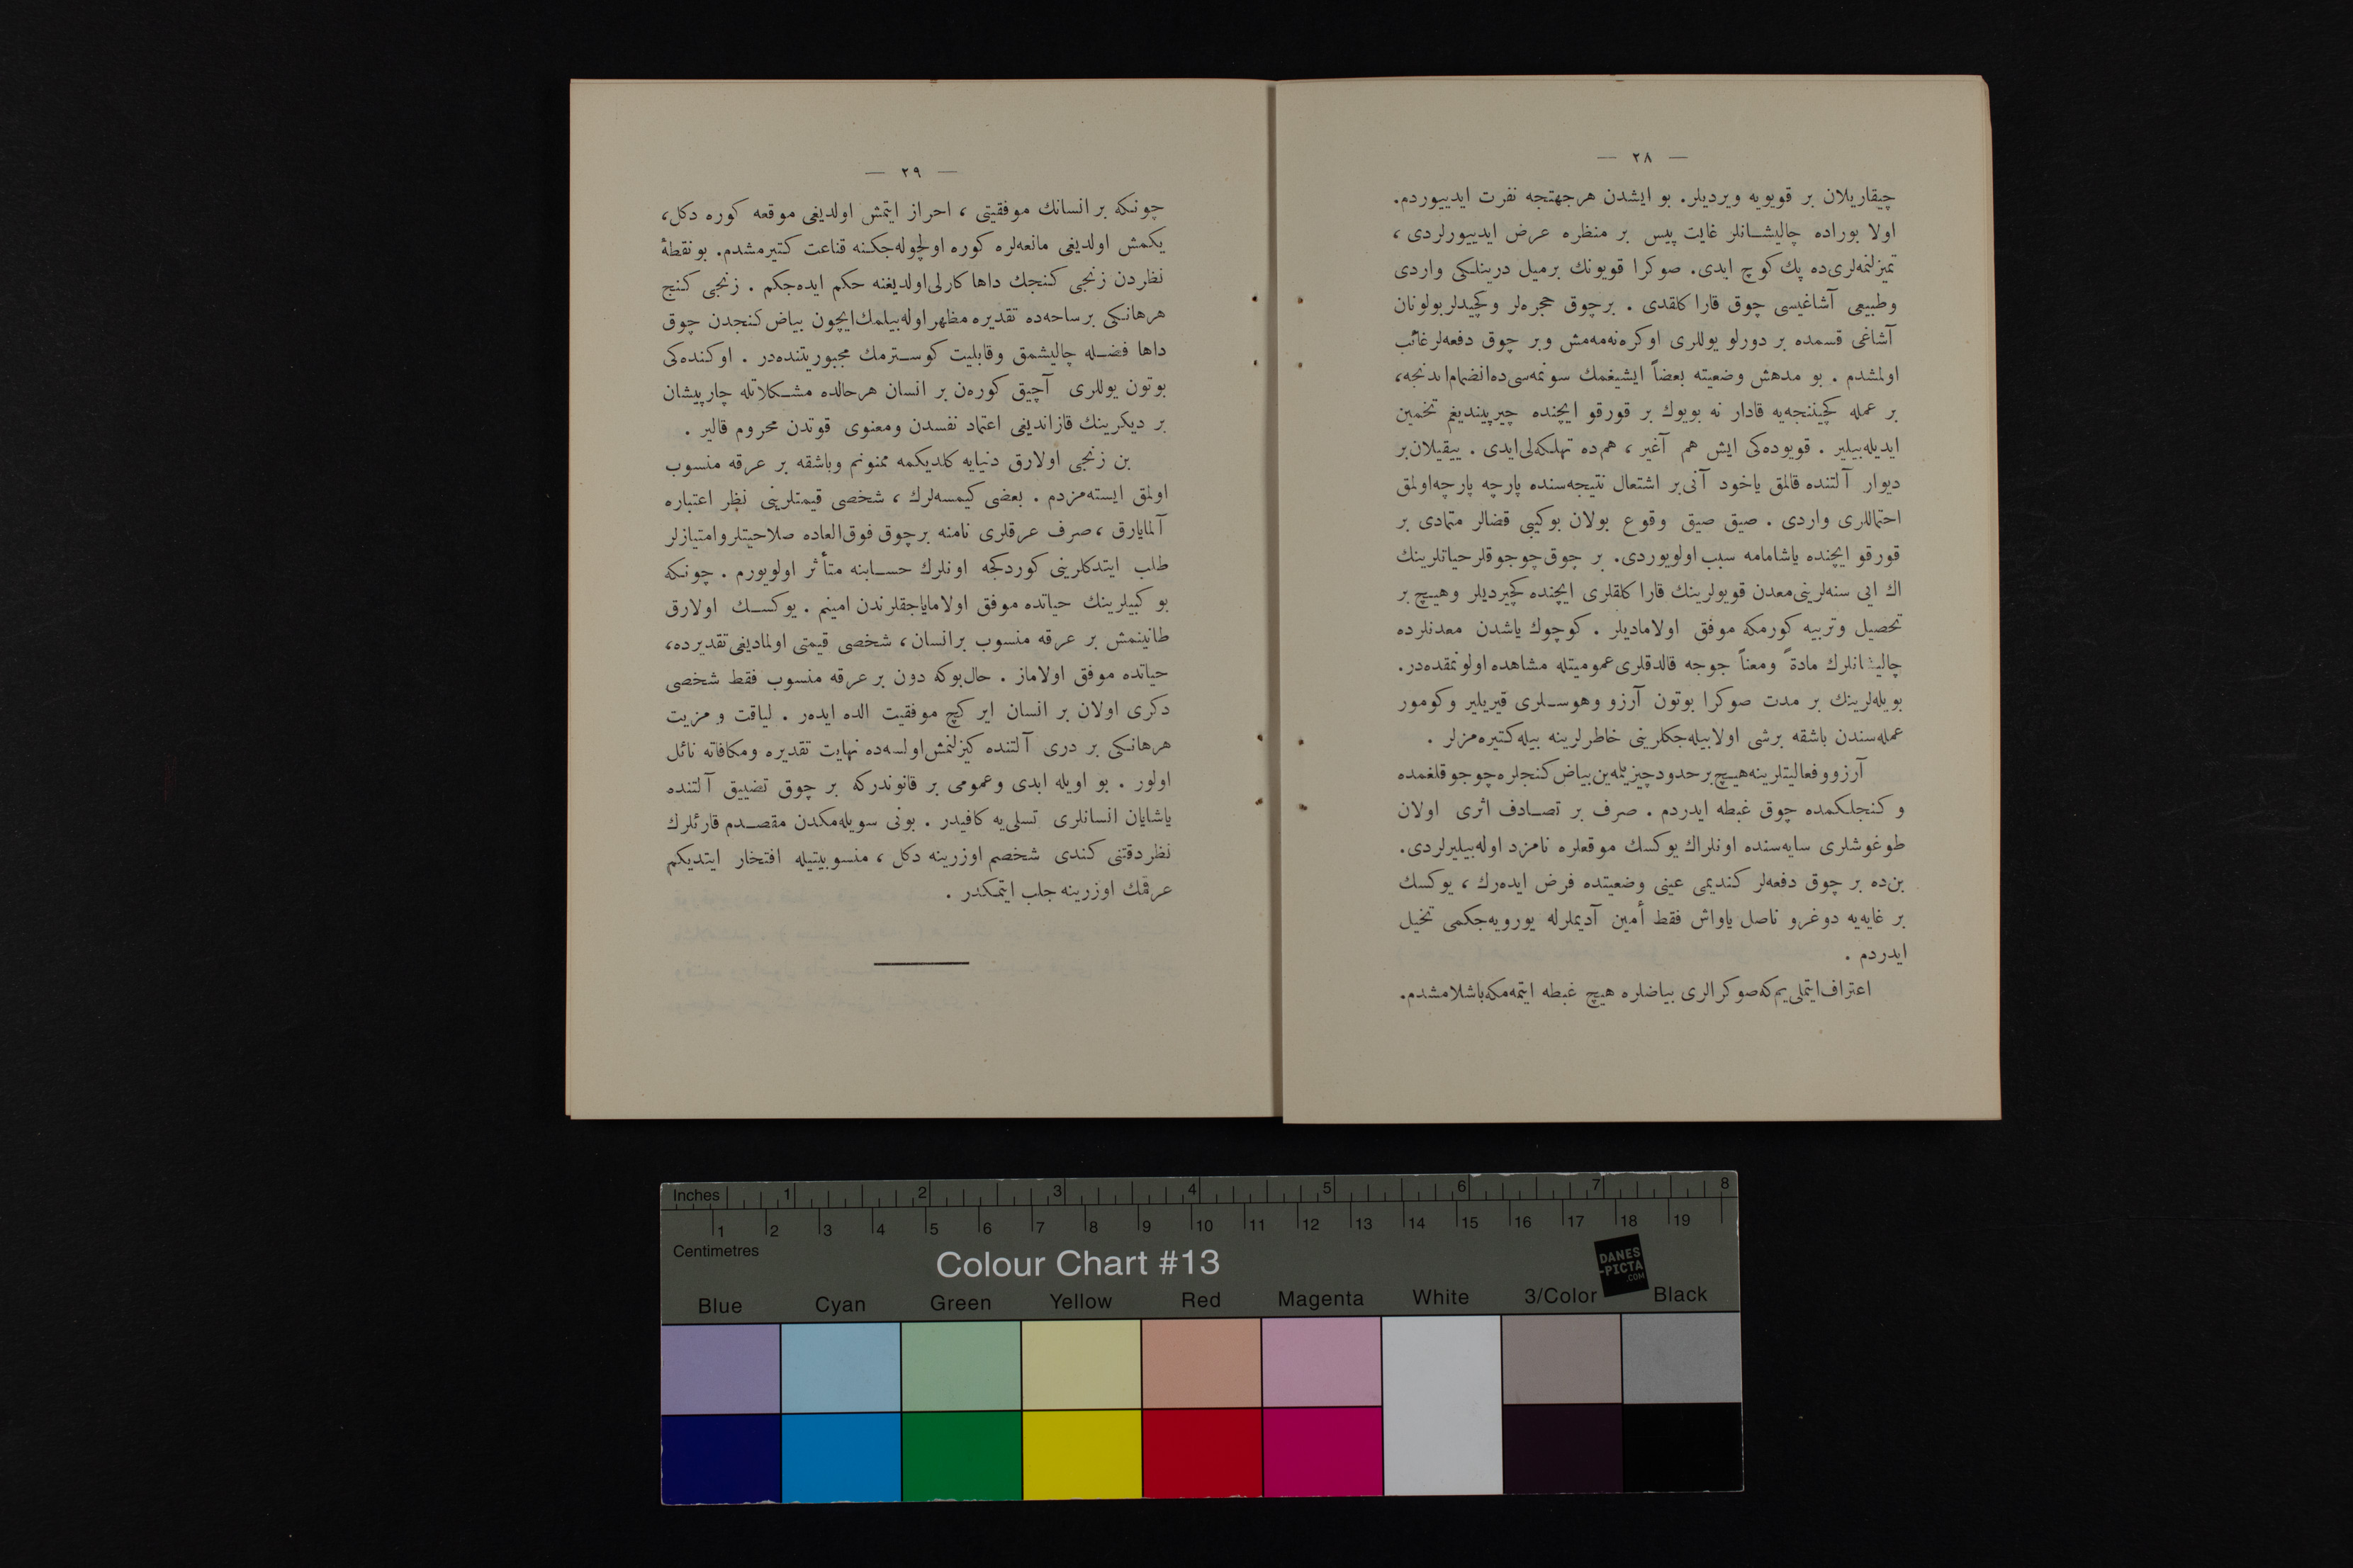 — ٢٨ —
چیقاریلان بر قویویه ویردیلر. بو ایشدن هرجهتجه نفرت ایدییوردم.
اولا بوراده چالیشـانلر غایت پیس بر منظره عرض ایدییورلردی ،
تمیزلنمه‌لری‌ده پك كوچ ایدی. صوكرا قویونك برمیل درینلكی واردی
وطبیعی آشاغیسی چوق قارا كلقدی . برچوق حجره‌لر وكچیدلر بولونان
آشاغی قسمده بر دورلو یوللری اوكره‌نه‌مه‌مش وبر چوق دفعه‌لر غائب
اولمشدم . بو مدهش وضعیته بعضاً ایشیغمك سونمه‌سی‌ده انضمام ایدنجه،
بر عمله كچیننجه‌یه قادار نه بویوك بر قورقو ایچنده چیرپیندیغم تخمین
ایدیله‌بیلیر . قویوده‌كی ایش هم آغیر ، هم‌ده تهلكه‌لی‌ایدی . ییقیلان بر
دیوار آلتنده قالمق یاخود آنی‌بر اشتعال نتیجه‌سنده پارچه پارچه‌اولمق
احتماللری واردی . صیق صیق وقوع بولان بوكیبی قضالر متمادی بر
قورقو ایچنده یاشامامه سبب اولویوردی. بر چوق‌چوجوقلر حیاتلرینك
اك ایی سنه‌لرینی‌معدن قویولرینك قارا كلقلری ایچنده كچیردیلر وهیـچ بر
تحصیل وتربیه كورمكه موفق اولامادیلر . كوچوك یاشدن معدنلرده
چالیشانلرك مادةً ومعناً جوجه قالدقلری‌عمومیتله مشاهده اولونمقده‌در.
بویله‌لرینك بر مدت صوكرا بوتون آرزو وهوسـلری قیریلیر وكومور
عمله‌سندن باشقه برشی اولابیله‌جكلرینی خاطرلرینه بیله كتیره‌مزلر .
آرزو وفعالیتلرینه‌هیـچ بر حدود چیزیلمه‌ین بیاض كنجلره چوجوقلغمده
و كنجلكمده چوق غبطه ایدردم . صرف بر تصـادف اثری اولان
طوغوشلری سایه‌سنده اونلراك یوكسك موقعلره نامزد اوله‌بیلیرلردی.
بن‌ده بر چوق دفعه‌لر كندیمی عینی وضعیتده فرض ایده‌رك ، یوكسك
بر غایه‌یه دوغرو ناصل یاواش فقط أمین آدیملرله یورویه‌جكمی تخیل
ایدردم .
اعتراف‌ایتملی‌یم‌كه صوكرالری بیاضلره هیچ غبطه ایتمه‌مكه‌باشلامشدم.
— ٢٩ —
چونكه بر انسانك موفقیتی ، احراز ایتمش اولدیغی موقعه كوره دكل،
یكمش اولدیغی مانعه‌لره كوره اولچوله‌جكنه قناعت كتیرمشدم. بونقطهٔ
نظردن زنجی كنجك داها كارلی‌اولدیغنه حكم ایده‌جكم . زنجی كنج
هرهانـكی بر ساحه‌ده تقدیره مظهر اوله‌بیلمك‌ایچون بیاض كنجدن چوق
داها فضـله چالیشمق وقابلیت كوسـترمك مجبوریتنده‌در . اوكنده‌كی
بوتون یوللری آچیق كوره‌ن بر انسان هرحالده مشـكلاتله چارپیشان
بر دیكرینك قازاندیغی اعتماد نفسدن ومعنوی قوتدن محروم قالیر .
بن زنجی اولارق دنیایه كلدیكمه ممنونم وباشقه بر عرقه منسوب
اولمق ایسته‌مزدم . بعضی كیمسه‌لرك ، شخصی قیمتلرینی نظر اعتباره
آلمایارق ، صرف عرقلری نامنه بر چوق فوق‌العاده صلاحیتلر وامتیازلر
طلب ایتدكلرینی كوردكجه اونلرك حسـابنه متأثر اولویورم . چونكه
بو كبیلرینك حیاتده موفق اولامایاجقلرندن امینم . یوكسـك اولارق
طانینمش بر عرقه منسوب برانسان ، شخصی قیمتی اولمادیغی تقدیرده،
حیاتده موفق اولاماز . حال‌بوكه دون بر عرقه منسوب فقط شخصی
دكری اولان بر انسان ایر كچ موفقیت الده ایده‌ر . لیاقت و مزیت
هرهانـكی بر دری آلتنده كیزلنمش‌اولسه‌ده نهایت تقدیره ومكافاته نائل
اولور . بو اویله ابدی وعمومی بر قانوندركه بر چوق تضییق آلتنده
یاشایان انسانلری تسلی‌یه كافیدر . بونی سویله‌مكدن مقصـدم قارئلرك
نظر دقتنی كندی شخصم اوزرینه دكل ، منسوبیتیله افتخار ایتدیكم
عرقمك اوزرینه جلب ایتمكدر .
Inches 1 2 3 4 5 6 7 8
1 2 3 4 5 6 7 8 9 10 11 12 13 14 15 16 17 18 19
Centimetres
Colour Chart #13
DANES
-PICTA
.COM
Blue Cyan Green Yellow Red Magenta White 3/Color Black